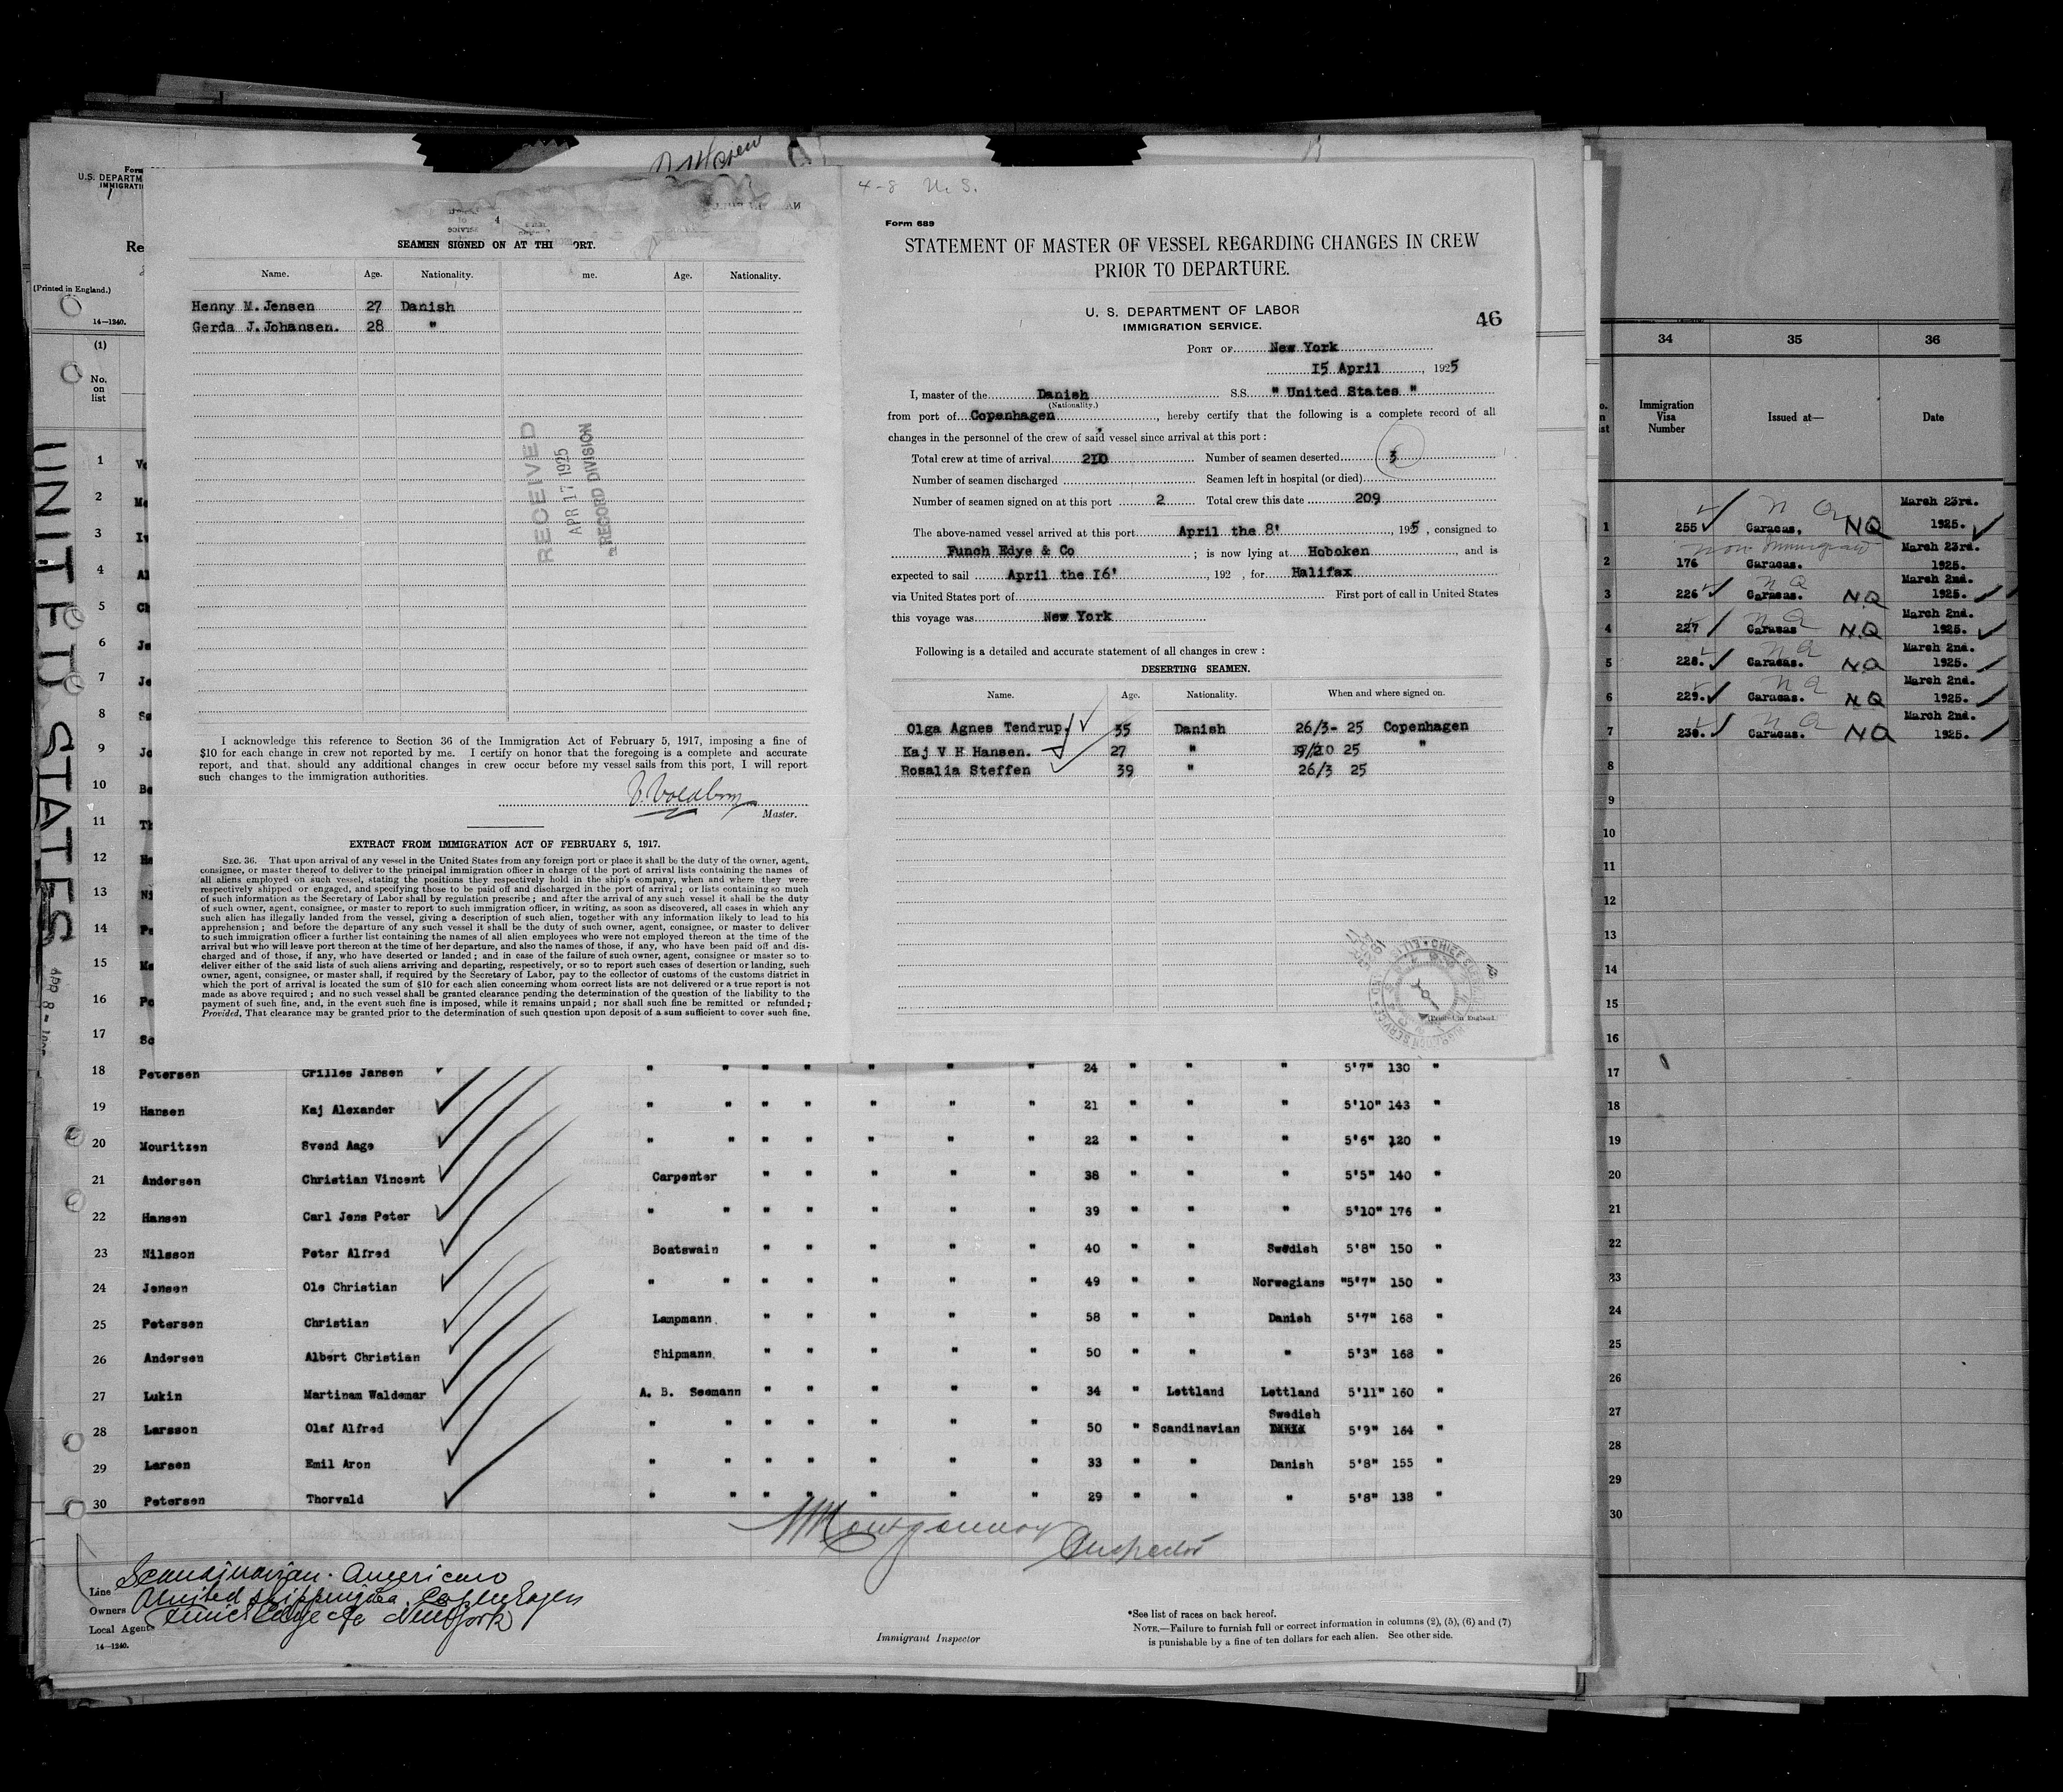 Form
U.S. DEPARTM
IMMIGRATI
Re
(Printed in England.)
14—1240.
(1)
No.
on
list
UNITED STATES
4
SEAMEN SIGNED ON AT THI ORT.
Name. Age. Nationality. me. Age. Nationality.
Henny M. Jensen 27 Danish
Gerda J. Johansen. 28 "
RECEIVED
APR 17 1925
RECORD DIVISION
I acknowledge this reference to Section 36 of the Immigration Act of February 5, 1917, imposing a fine of
$10 for each change in crew not reported by me. I certify on honor that the foregoing is a complete and accurate
report, and that, should any additional changes in crew occur before my vessel sails from this port, I will report
such changes to the immigration authorities.
Master.
EXTRACT FROM IMMIGRATION ACT OF FEBRUARY 5, 1917.
SEC. 36. That upon arrival of any vessel in the United States from any foreign port or place it shall be the duty of the owner, agent,
consignee, or master thereof to deliver to the principal immigration officer in charge of the port of arrival lists containing the names of
all aliens employed on such vessel, stating the positions they respectively hold in the ship's company, when and where they were
respectively shipped or engaged, and specifying those to be paid off and discharged in the port of arrival; or lists containing so much
of such information as the Secretary of Labor shall by regulation prescribe; and after the arrival of any such vessel it shall be the duty
of such owner, agent, consignee, or master to report to such immigration officer, in writing, as soon as discovered, all cases in which any
such alien has illegally landed from the vessel, giving a description of such alien, together with any information likely to lead to his
apprehension; and before the departure of any such vessel it shall be the duty of such owner, agent, consignee, or master to deliver
to such immigration officer a further list containing the names of all alien employees who were not employed thereon at the time of the
arrival but who will leave port thereon at the time of her departure, and also the names of those, if any, who have been paid off and dis-
charged and of those, if any, who have deserted or landed; and in case of the failure of such owner, agent, consignee or master so to
deliver either of the said lists of such aliens arriving and departing, respectively, or so to report such cases of desertion or landing, such
owner, agent, consignee, or master shall, if required by the Secretary of Labor, pay to the collector of customs of the customs district in
which the port of arrival is located the sum of $10 for each alien concerning whom correct lists are not delivered or a true report is not
made as above required; and no such vessel shall be granted clearance pending the determination of the question of the liability to the
payment of such fine, and, in the event such fine is imposed, while it remains unpaid; nor shall such fine be remitted or refunded;
Provided, That clearance may be granted prior to the determination of such question upon deposit of a sum sufficient to cover such fine.
4-8 U. S.
Form 689
STATEMENT OF MASTER OF VESSEL REGARDING CHANGES IN CREW
PRIOR TO DEPARTURE.
U. S. DEPARTMENT OF LABOR
IMMIGRATION SERVICE.
46
PORT OF New York
15 April, 1925
I, master of the Danish S.S. " United States "
(Nationality.)
from port of Copenhagen, hereby certify that the following is a complete record of all
changes in the personnel of the crew of said vessel since arrival at this port:
Total crew at time of arrival 210 Number of seamen deserted 3
Number of seamen discharged Seamen left in hospital (or died)
Number of seamen signed on at this port 2 Total crew this date 209
The above-named vessel arrived at this port April the 8', 1925, consigned to
Funch Edye & Co; is now lying at Hoboken, and is
expected to sail April the 16', 192 , for Halifax
via United States port of First port of call in United States
this voyage was New York
Following is a detailed and accurate statement of all changes in crew:
DESERTING SEAMEN.
Name. Age. Nationality. When and where signed on.
Olga Agnes Tendrup. 35 Danish 26/3- 25 Copenhagen
Kaj V H Hansen. 27 " 25 "
Rosalia Steffen 39 " 26/3 25
(Printed in England.
1 Vo
2 Mo
3 Iv
4 Al
5 Ch
6 Je
7 Jo
8 Sø
9 Jo
10 Be
11 Th
12 Ha
13 Ni
14 Pe
15 Ma
16 Po
17 So
18 Petersen Crilles Jansen " " " " " " " 24 " " " 5'7" 130 "
19 Hansen Kaj Alexander " " " " " " " 21 " " " 5'10" 143 "
20 Mouritzen Svend Aage " " " " " " " 22 " " " 5'6" 120 "
21 Andersen Christian Vincent Carpenter " " " " " 38 " " " 5'5" 140 "
22 Hansen Carl Jens Peter " " " " " " " 39 " " " 5'10" 176 "
23 Nilsson Peter Alfred Boatswain " " " " " 40 " " Swedish 5'8" 150 "
24 Jensen Ole Christian " " " " " " " 49 " " Norwegians "5'7" 150 "
25 Petersen Christian Lampmann. " " " " " 58 " " Danish 5'7" 168 "
26 Andersen Albert Christian Shipmann. " " " " " 50 " " " 5'3" 168 "
27 Lukin Martinam Waldemar A. B. Seemann " " " " " 34 " Lettland Lettland 5'11" 160 "
28 Larsson Olaf Alfred " " " " " " " 50 " Scandinavian Swedish 5'9" 164 "
29 Larsen Emil Aron " " " " " " " 33 " " Danish 5'8" 155 "
30 Petersen Thorvald " " " " " " " 29 " " " 5'8" 138 "
Montgomery Inspector
Line Scandinavian-American
Owners United Shipping Co Copenhagen
Local Agents Funch Edye Co New York
14—1240.
Immigrant Inspector
*See list of races on back hereof.
NOTE.—Failure to furnish full or correct information in columns (2), (5), (6) and (7)
is punishable by a fine of ten dollars for each alien. See other side.
34 35 36
Immigration
Visa
Number
Issued at—
Date
1 255 Caracas. N Q March 23rd. 1925.
Non Immigrant
2 176 Caracas. March 23rd. 1925.
3 226 Caracas. N Q March 2nd. 1925.
4 227 Caracas N Q March 2nd. 1925.
5 228. Caracas. N Q March 2nd. 1925.
6 229. Caracas. N Q March 2nd. 1925.
7 230. Caracas. N Q March 2nd. 1925.
8
9
10
11
12
13
14
15
16
17
18
19
20
21
22
23
24
25
26
27
28
29
30